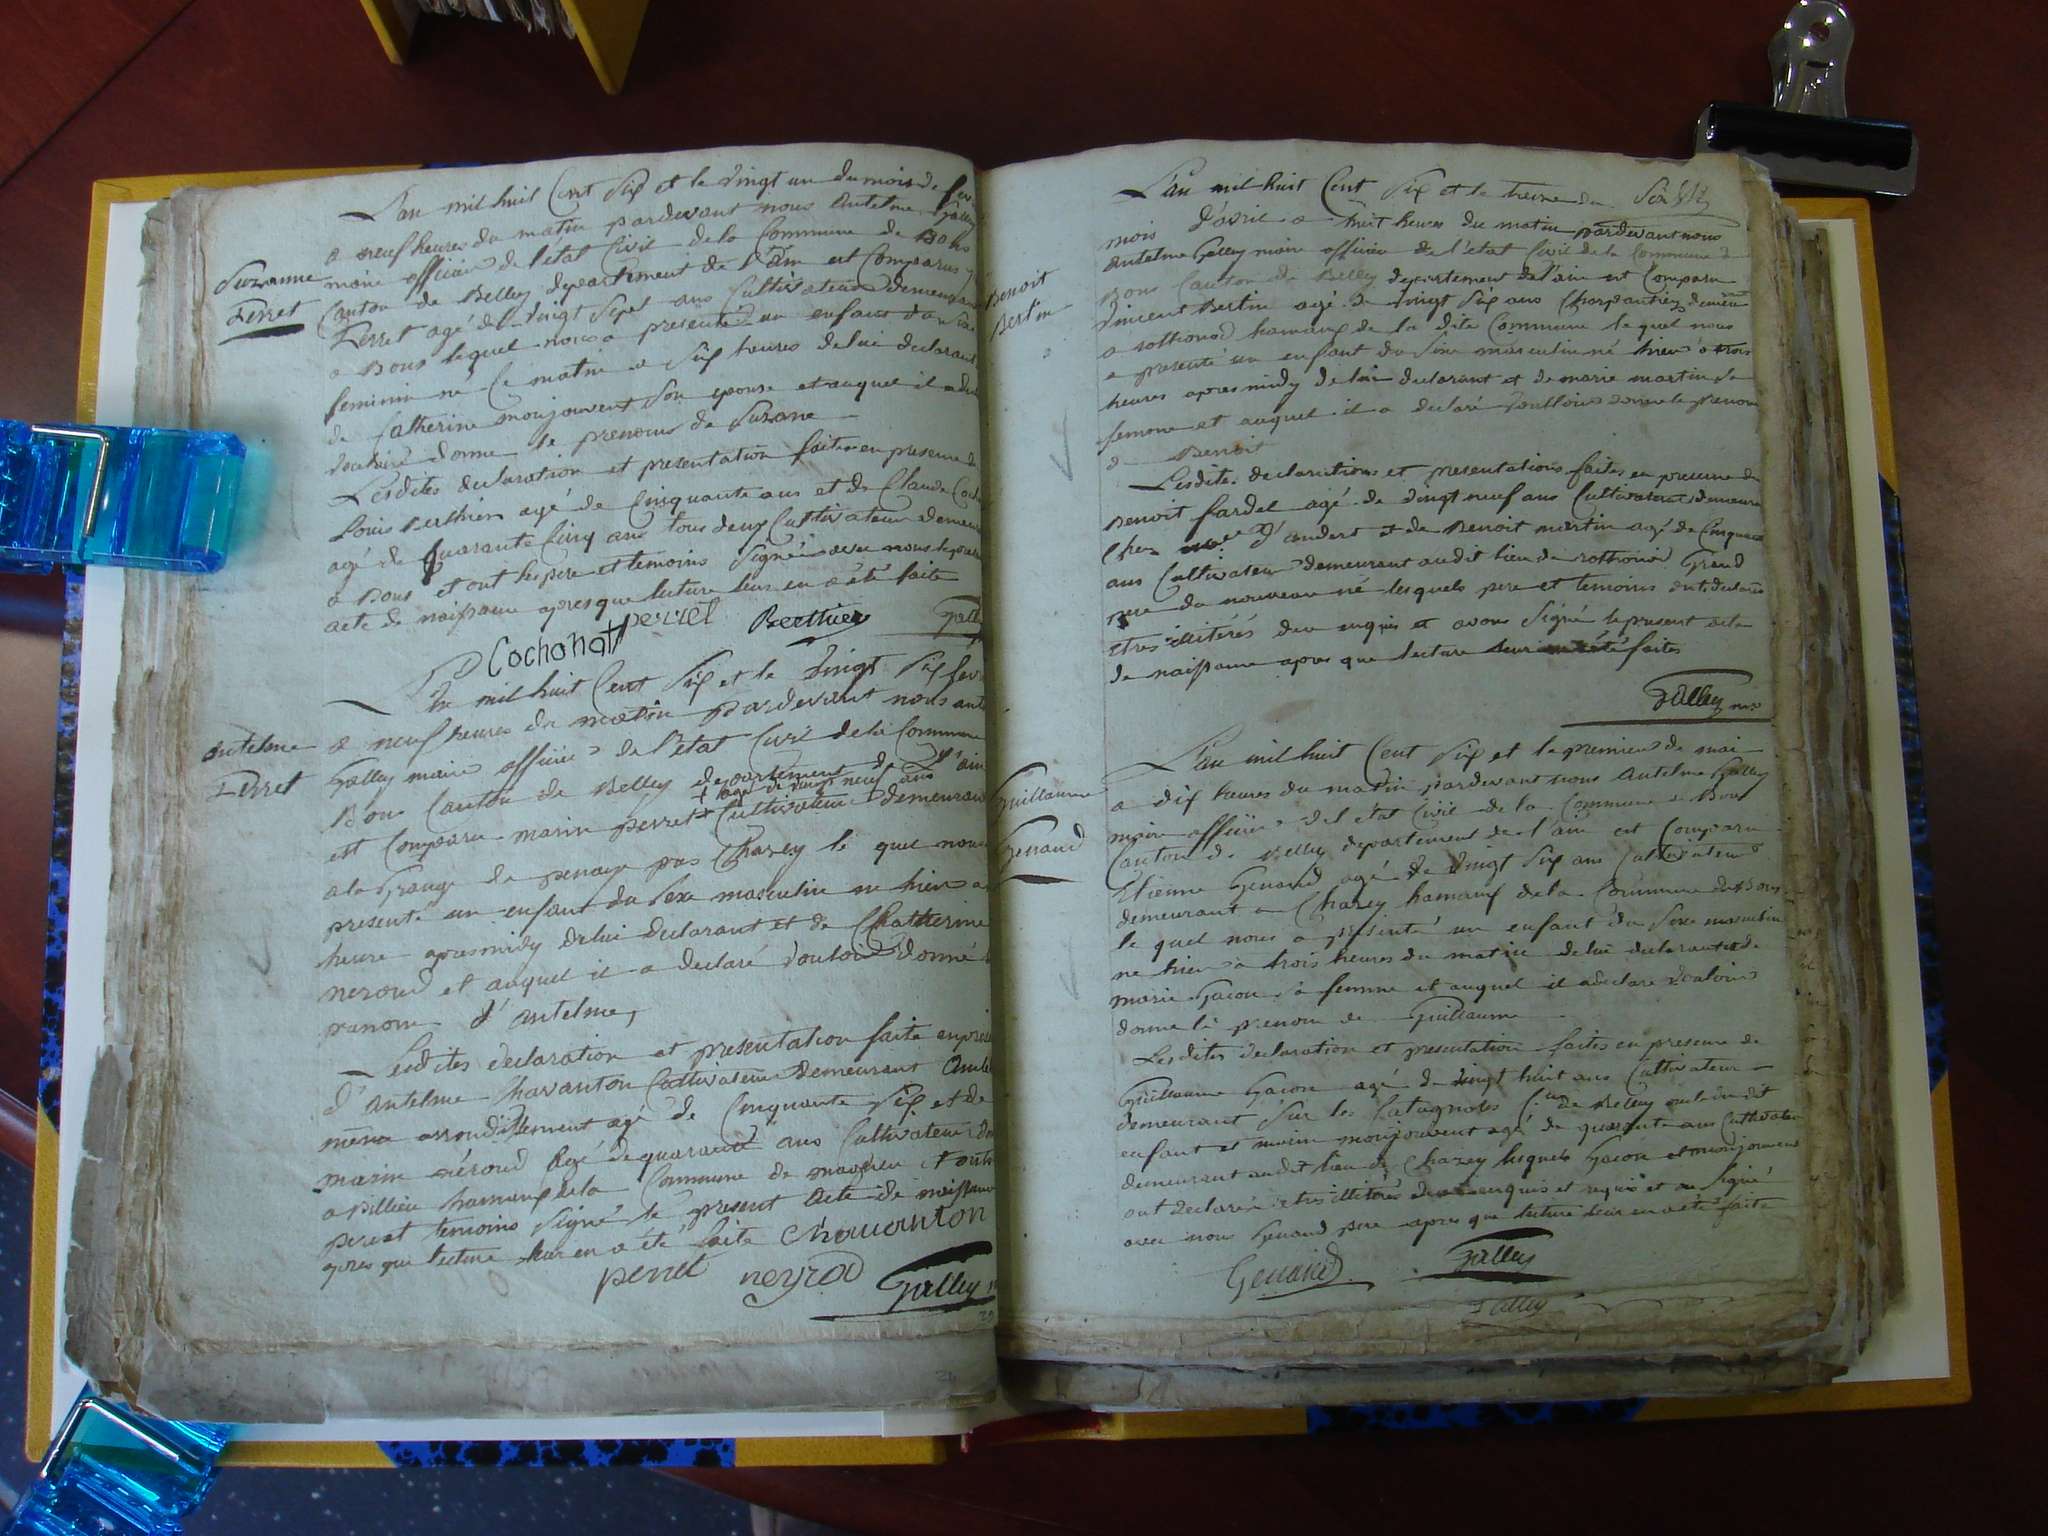 L'an mil huit Cent Six et le vingt un du mois de
a neuf heures du matin pardevant nous Antelme Galley
Suzanne
Perret
maire officier de l'état Civil de la Commune de Bons
Canton de Belley departement de l'ain est Comparus
Perret agé de vingt Sept ans Cultivateur demeurant
a Bons lequel nous a presenté un enfant du Sexe
feminin né Ce matin a Six heures de lui declarant
de Catherine monjouvent Son epouse et auquel il a
donné le prenoms de Suzane
Lesdites declaration et presentation faites en presence de
Louis Berthier agé de Cinquante ans et de Claude
agé de quarante Cinq ans tous deux Cultivateur
a Bons et ont les pere et temoins Signés avec nous le present
acte de naissance apres que lecture leur en a été faite
perret Berthier Galley
Cochonat
L'an mil huit Cent Six et le vingt Six
antelme
Perret
a neuf heures du matin Pardevant nous
Galley maire officier de l'état Civil de la Commune
Bons Canton de Belley departement de l'ain
+ agé de vingt neuf ans
est Comparu marin perret + Cultivateur demeurant
a la Grange de penaye pas Chazey le quel nous
presenté un enfant du Sexe masculin né hier a
heure apres midy de lui declarant et de Chatherine
neroud et auquel il a declaré vouloir donné
prenom d'antelme,
Lesdites declaration et presentation faite
d'antelme Chavanton Cultivateur demeurant
meme arrondissement agé de Cinquante Six et de
marin néroud agé de quarante ans Cultivateur
a Billieu hamaux de la Commune de magnieu
pere et temoins Signé le present acte de naissance
apres que lecture leur en a été faite Chavanton
perret neyrod Galley
L'an mil huit Cent Six et le treize du
mois d'avril a huit heures du matin pardevant nous
Antelme Galley maire officier de l'état Civil de la Commune de
Benoit
Bertin
Bons Canton de Belley departement de l'ain est Comparu
vincent Bertin agé de vingt Six ans Charpantier
a rothonod hamaux de la dite Commune lequel nous
a presenté un enfant du Sexe masculin né hier a trois
heures apres midy de lui declarant et de marie martin Sa
femme et auquel il a declaré vouloir donner le prenom
de Benoit
Lesdites declarations et presentations faites en presence de
Benoit fardel agé de vingt neuf ans Cultivateur
d'andert et de Benoit martin agé de Cinquante
ans Cultivateur demeurant audit lieu de rothonod Grand
pere du nouveau né lesquels pere et temoins ont declaré
etres illitérés de ce enquis et avons Signé le present acte
de naissance apres que lecture leur en a été faites
Galley
L'an mil huit Cent Six et le premier de mai
Guillaume
Genaud
a dix heures du matin pardevant nous Antelme Galley
maire officier de l'état Civil de la Commune de Bons
Canton de Belley departement de l'ain est Comparu
Etienne Genaud agé de vingt Six ans Cultivateur
demeurant a Chazey hamaux de la Commune de Bons
le quel nous a presenté un enfant du Sexe masculin
né hier a trois heures du matin de lui declarant et de
marie Gacon sa femme et auquel il a declare vouloir
donne le prenom de Guillaume
Lesdites declaration et presentation faites en presence de
Guillaume Gacon agé de vingt huit ans Cultivateur
demeurant Sur les Catagnoles de Belley oncle du dit
enfant et marin monjouvent agé de quarante ans Cultivateur
demeurant audit lieu de Chazey lesquels Gacon et monjouvent
ont declaré etres illiteré de ce enquis et requis et a Signé
avec nous Genaud pere apres que lecture leur en a été faite
Genaud Galley
Galley